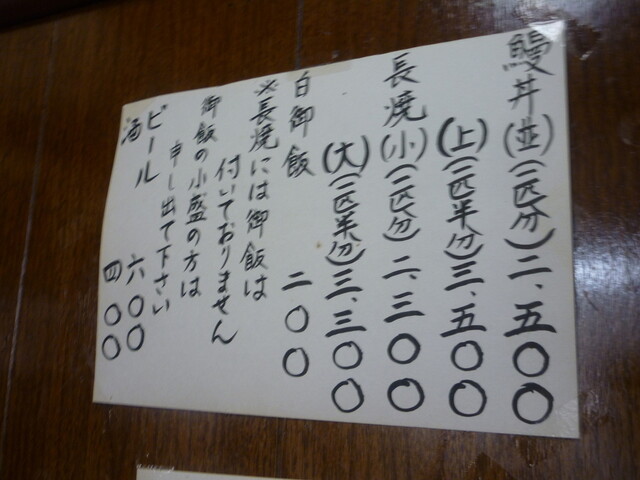 鰻丼(並)(二匹分)二、五〇〇
(上)(二匹半分)三、五〇〇
長焼(小)(二匹分)二、三〇〇
(大)(二匹半分)三、三〇〇
白御飯 二〇〇
※長焼には御飯は
付いておりません
御飯の小盛の方は
申し出て下さい
ビール 六〇〇
酒 四〇〇